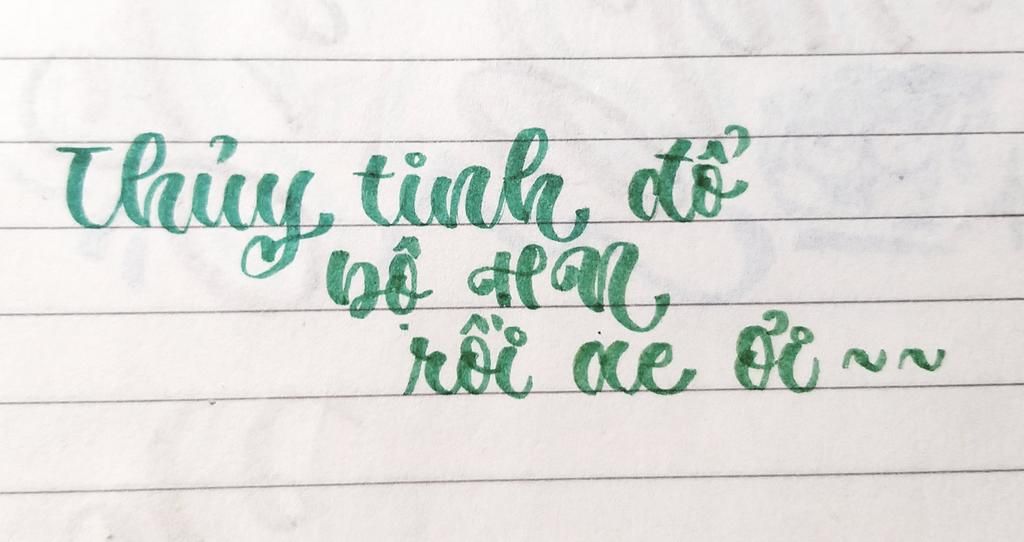 Thủy tinh đổ
bộ HN
rồi ae ơi ~~